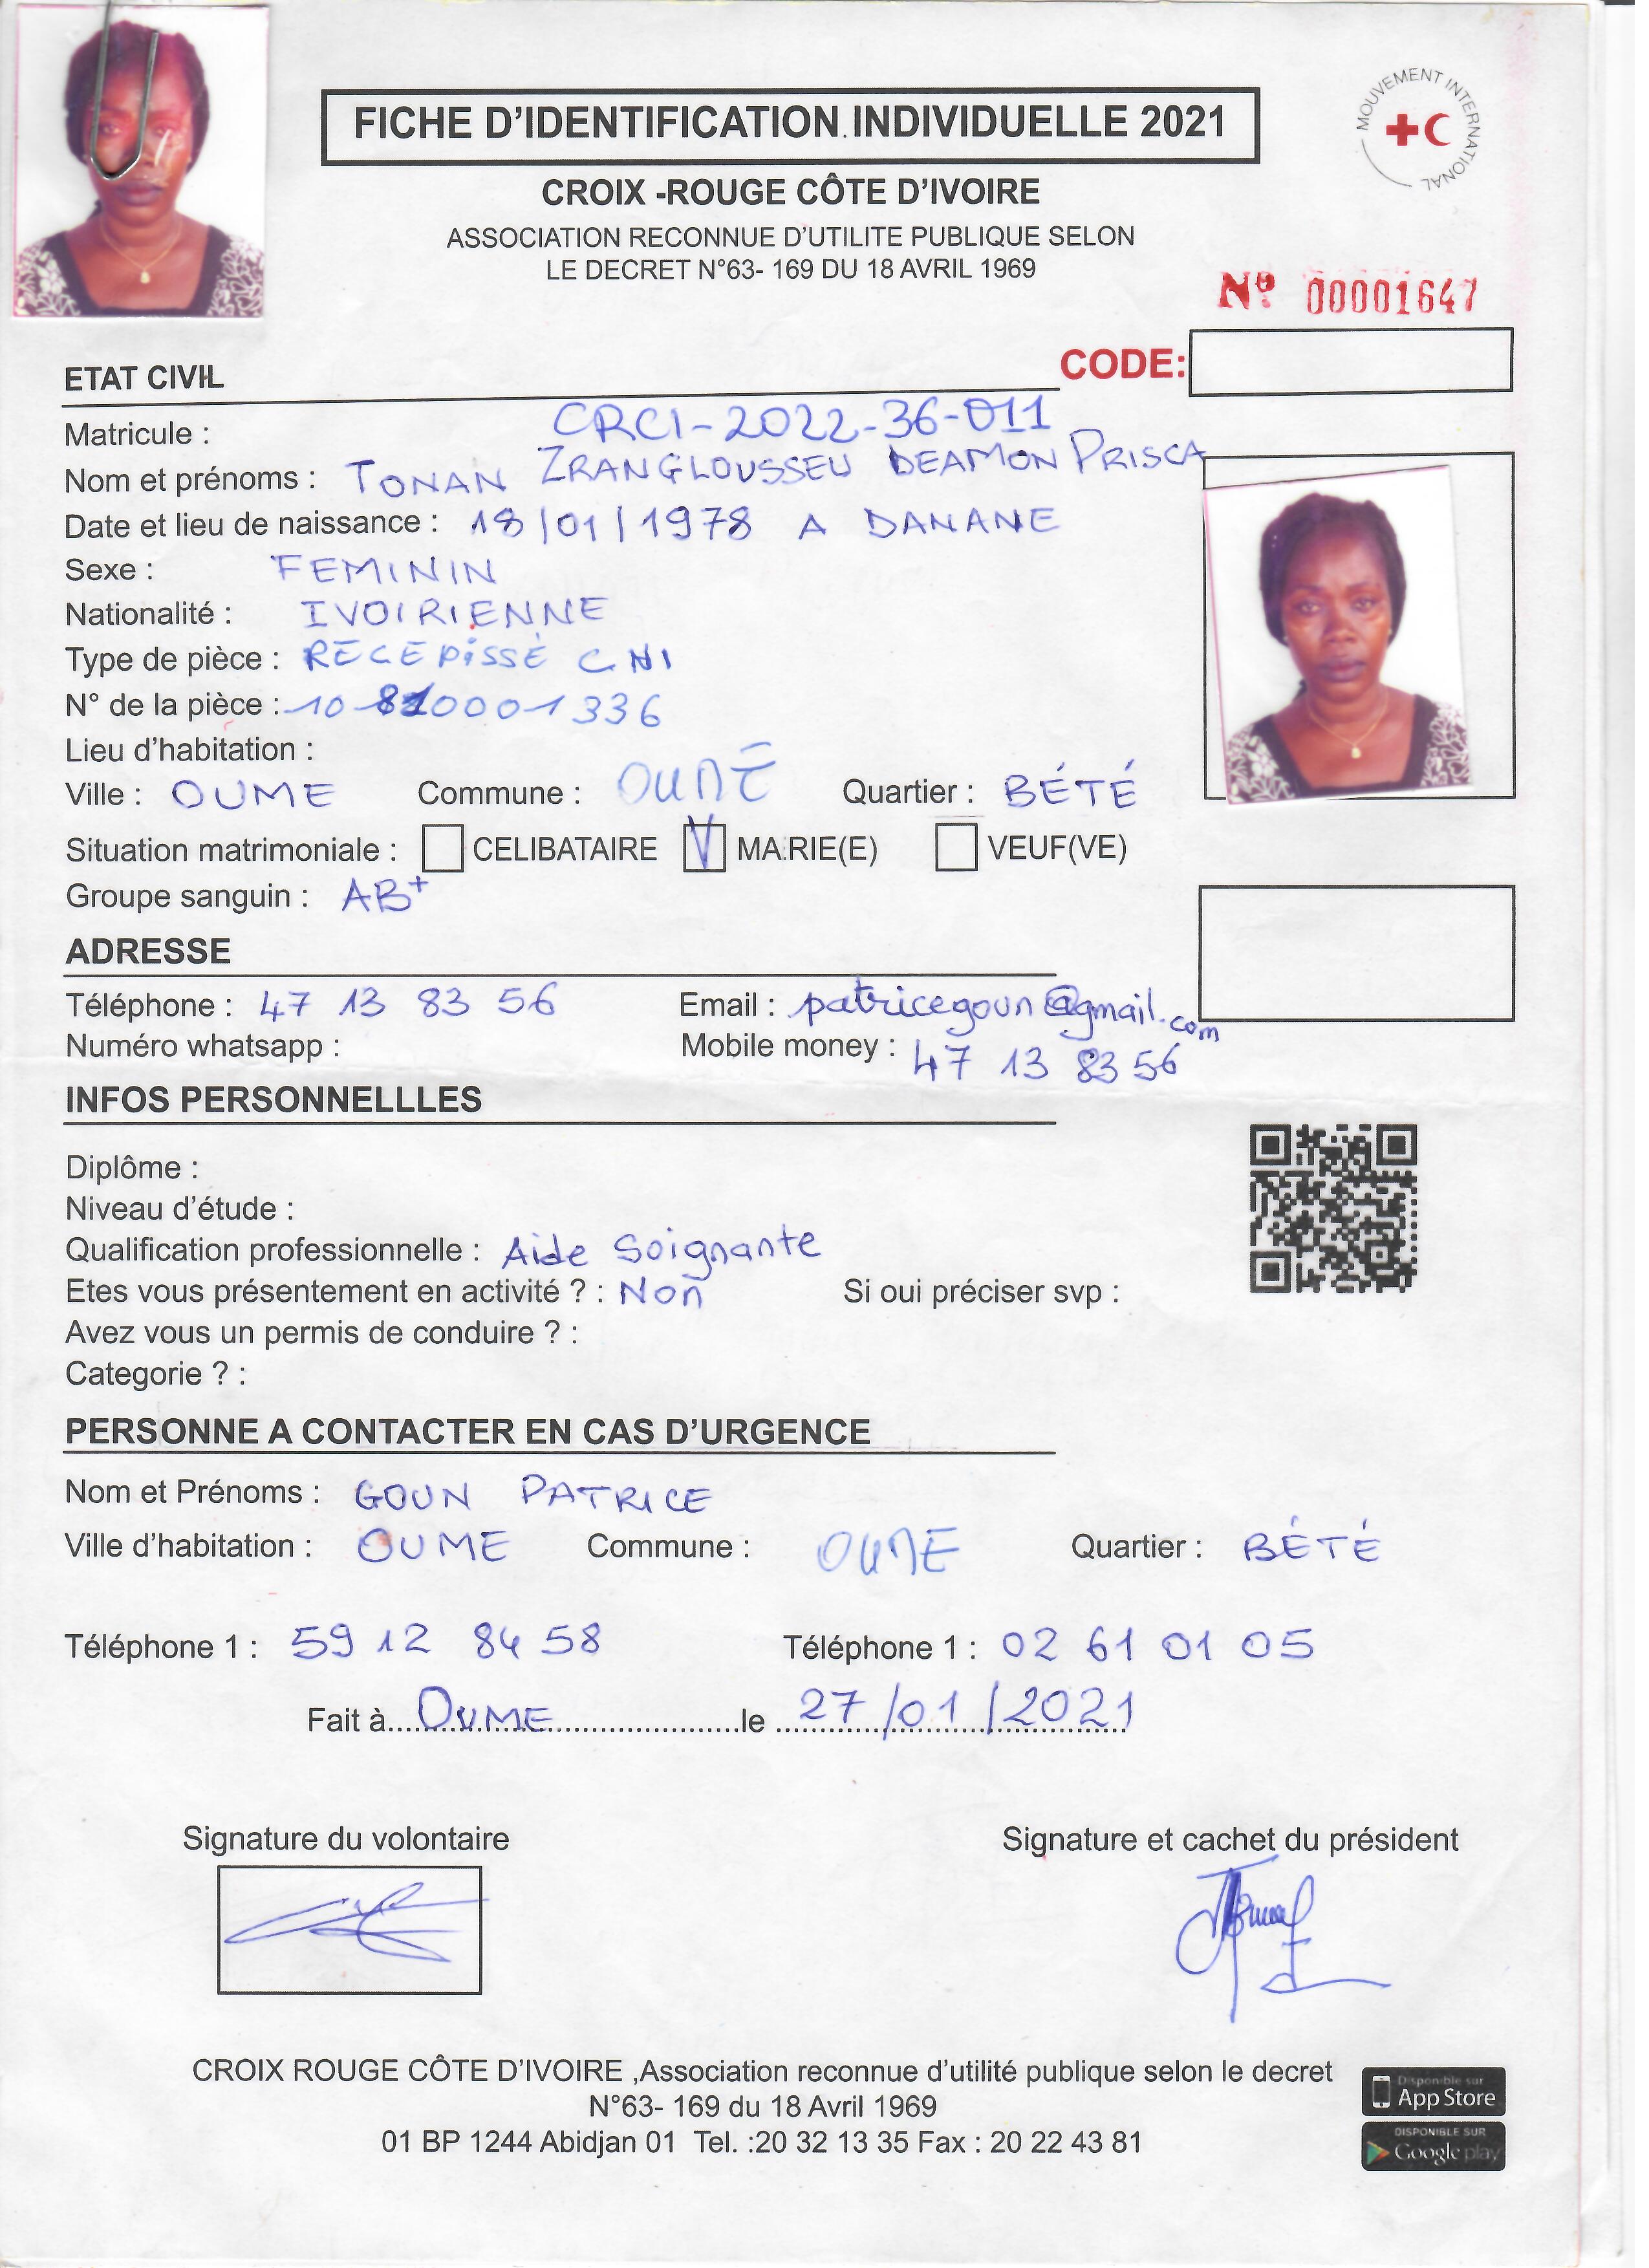 FICHE D'IDENTIFICATION INDIVIDUELLE 2021
MOUVEMENT INTERNATIONAL
CROIX -ROUGE CÔTE D'IVOIRE
ASSOCIATION RECONNUE D'UTILITE PUBLIQUE SELON
LE DECRET N°63- 169 DU 18 AVRIL 1969
Nº 00001647
CODE:
ETAT CIVIL
Matricule : CRCI-2022-36-011
Nom et prénoms : TONAN ZRANGLOUSSEU DEAMON PRISCA
Date et lieu de naissance : 18/01/1978 A DANANE
Sexe : FEMININ
Nationalité : IVOIRIENNE
Type de pièce : RECEPISSÉ CNI
N° de la pièce : 10 810001336
Lieu d'habitation :
Ville : OUME Commune : OUMÉ Quartier : BÉTÉ
Situation matrimoniale : CELIBATAIRE MARIE(E) VEUF(VE)
Groupe sanguin : AB+
ADRESSE
Téléphone : 47 13 83 56 Email : patricegoun@gmail.com
Numéro whatsapp : Mobile money : 47 13 83 56
INFOS PERSONNELLLES
Diplôme :
Niveau d'étude :
Qualification professionnelle : Aide Soignante
Etes vous présentement en activité ? : Non Si oui préciser svp :
Avez vous un permis de conduire ? :
Categorie ? :
PERSONNE A CONTACTER EN CAS D'URGENCE
Nom et Prénoms : GOUN PATRICE
Ville d'habitation : OUME Commune : OUME Quartier : BÉTÉ
Téléphone 1 : 59 12 84 58 Téléphone 1 : 02 61 01 05
Fait à.... OUME ....le .... 27/01/2021
Signature du volontaire Signature et cachet du président
CROIX ROUGE CÔTE D'IVOIRE ,Association reconnue d'utilité publique selon le decret
N°63- 169 du 18 Avril 1969
01 BP 1244 Abidjan 01 Tel. :20 32 13 35 Fax : 20 22 43 81
Disponible sur
App Store
DISPONIBLE SUR
Google play